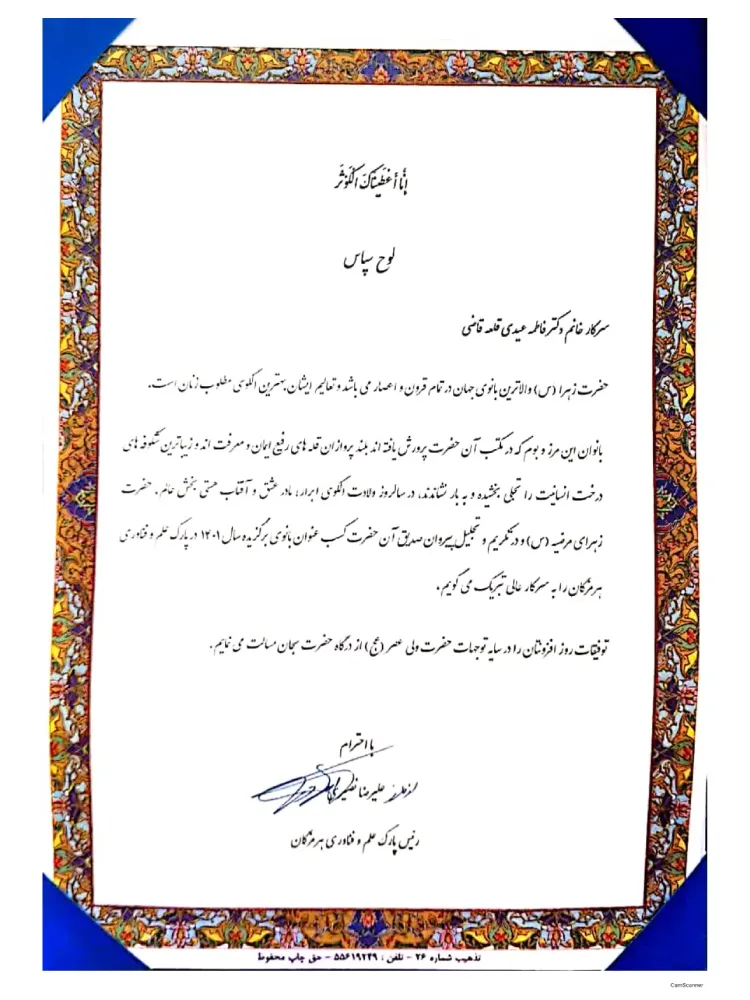 إنَّا أعْطَيْناكَ الْكَوْثَرَ
لوح سپاس
سرکار خانم دکتر فاطمه عیدی قلعه قاضی
حضرت زهرا (س) والاترین بانوی جهان در تمام قرون و اعصار می باشد و تعالیم ایشان بهترین الگوی مطلوب زنان است.
بانوان این مرز و بوم که در مکتب آن حضرت پرورش یافته اند بلند پروازان قله های رفیع ایمان و معرفت اند و زیباترین شکوفه های
درخت انسانیت را تجلی بخشیده و به بار نشاندند، در سالروز ولادت الگوی ابرار، مادر عشق و آفتاب هستی بخش عالم، حضرت
زهرای مرضیه (س) و در تکریم و تجلیل پیروان صدیق آن حضرت کسب عنوان بانوی برگزیده سال ۱۴۰۱ در پارک علم و فناوری
هرمزگان را به سرکار عالی تبریک می گویم.
توفیقات روز افزونتان را در سایه توجهات حضرت ولی عصر (عج) از درگاه حضرت سبحان مسالت می نمایم.
با احترام
علیرضا
رئیس پارک علم و فناوری هرمزگان
تذهیب شماره ۲۶ - تلفن : ۵۵۶۱۹۲۴۹ - حق چاپ محفوظ
CamScanner